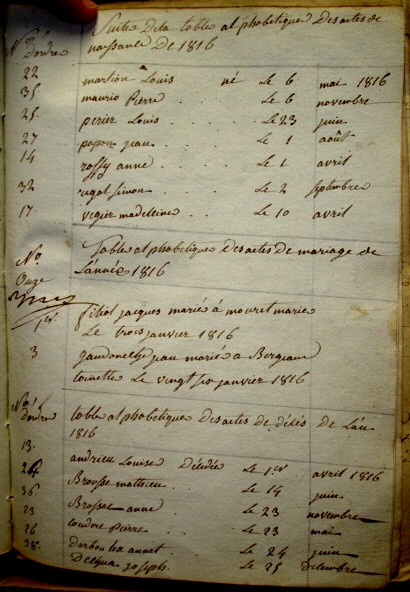 Suite de la table alphabetique des actes de
N.o d'ordre naissance De 1816
22 martien Louis né Le 6 mai 1816
35 maurio Pierre Le 6 novembre
25 perier Louis Le 23 juin
27 jean Le 1 août
14 roffy anne Le 1 avril
32 rigal simon Le 2 septembre
17 vegier madeleine Le 10 avril
Table alphabetique des actes de mariage de
N.o L'année 1816
Onze
filiol jacques marié à mouret marie
1er Le trois janvier 1816
3 jean marié a Bergeaud
toinette Le vingt six janvier 1816
N.o d'ordre table alphabetique Des actes de décés De L'an
1816
13 andrieu Louise Décédée Le 1er avril 1816
Brousse mathieu Le 14 juin
36
23 Brossac anne Le 23 novembre
26 Pierre Le 23 mai
38 annet Le 24 juin
joseph Le 25 Décembre